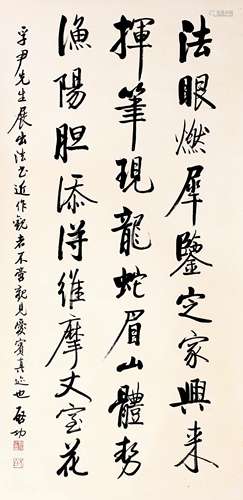 法眼燃犀鑒定家興来
揮筆現龍蛇眉山體勢
漁陽胆添得維摩丈室花
孚尹先生展出法书近作觀者不啻親見愛賓真迹也 啟功